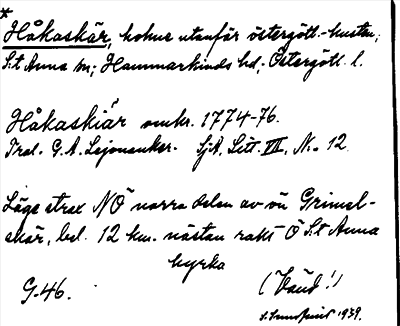 *
Håkaskär, holme utanför östergötl.-kusten;
S:t Anna sn; Hammarkinds hd; Östergötl. l.
Håkaskiär omkr. 1774-76.
Trol. G. A. Lejonanker. SjA, Litt. VII, Nr 12.
Låge strax NO norra delen av ön Grimsl-
skär, bel. 12 km. nästan rakt O S:t Anna
kyrka
G-46.
(Vänd!)
1939.